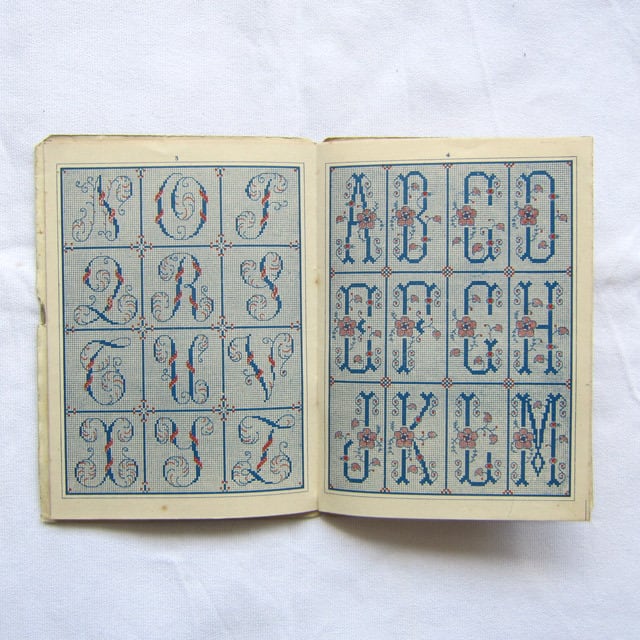 3
N O P
Q R S
T U V
X Y Z
4
A B C D
E F G H
J K L M